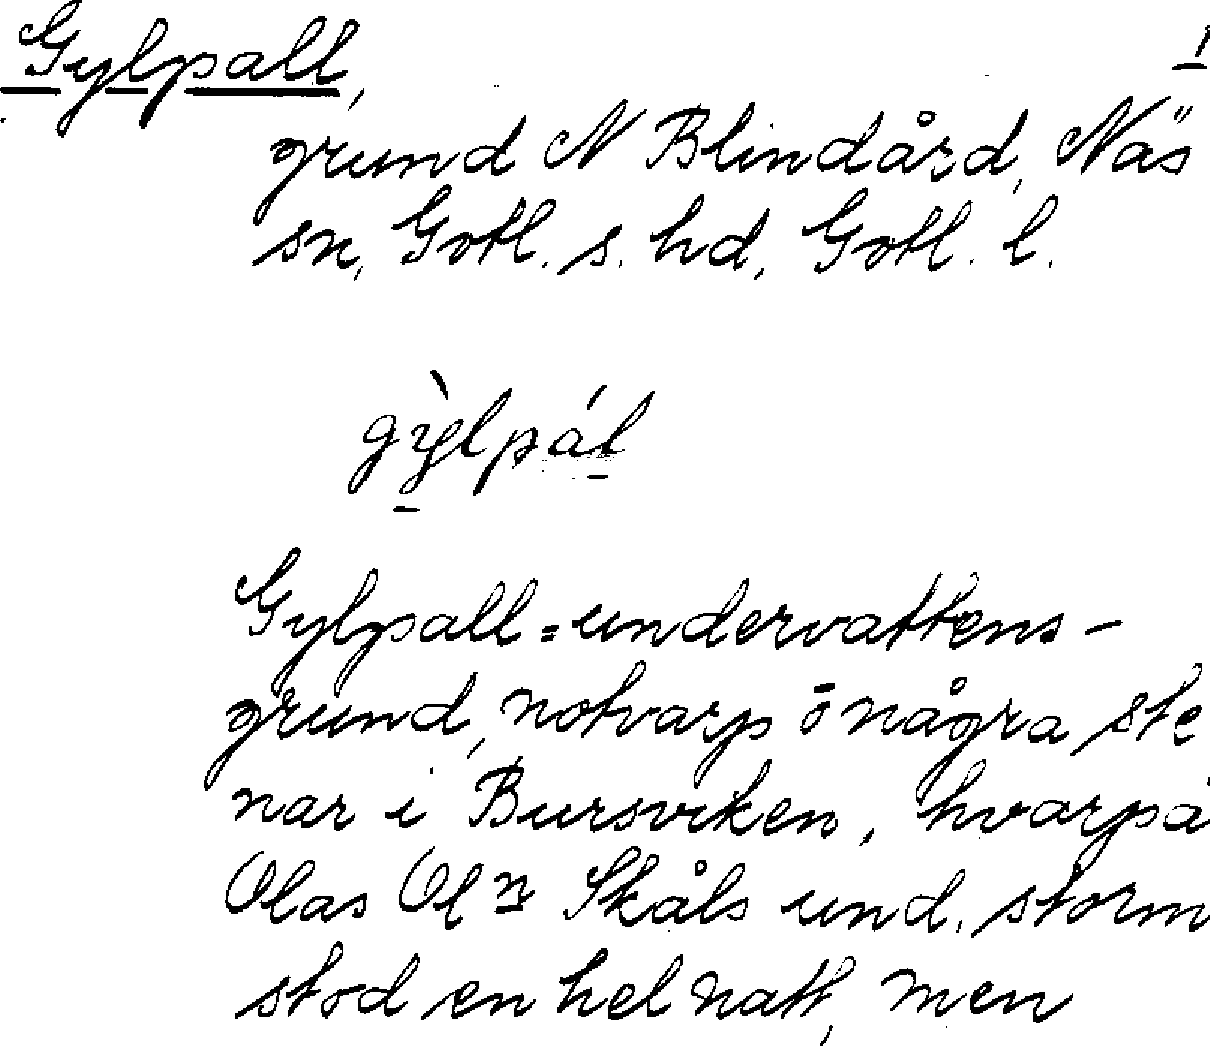 Gylpall, 1
grund N Blindård, Näs
sn, Gotl. s. hd, Gotl. l.
gỳlpál
Gylpall = undervattens-
grund, notvarp o några ste
nar i Bursviken, hvarpå
Olas Oln Skåls und. storm
stod en hel natt, men